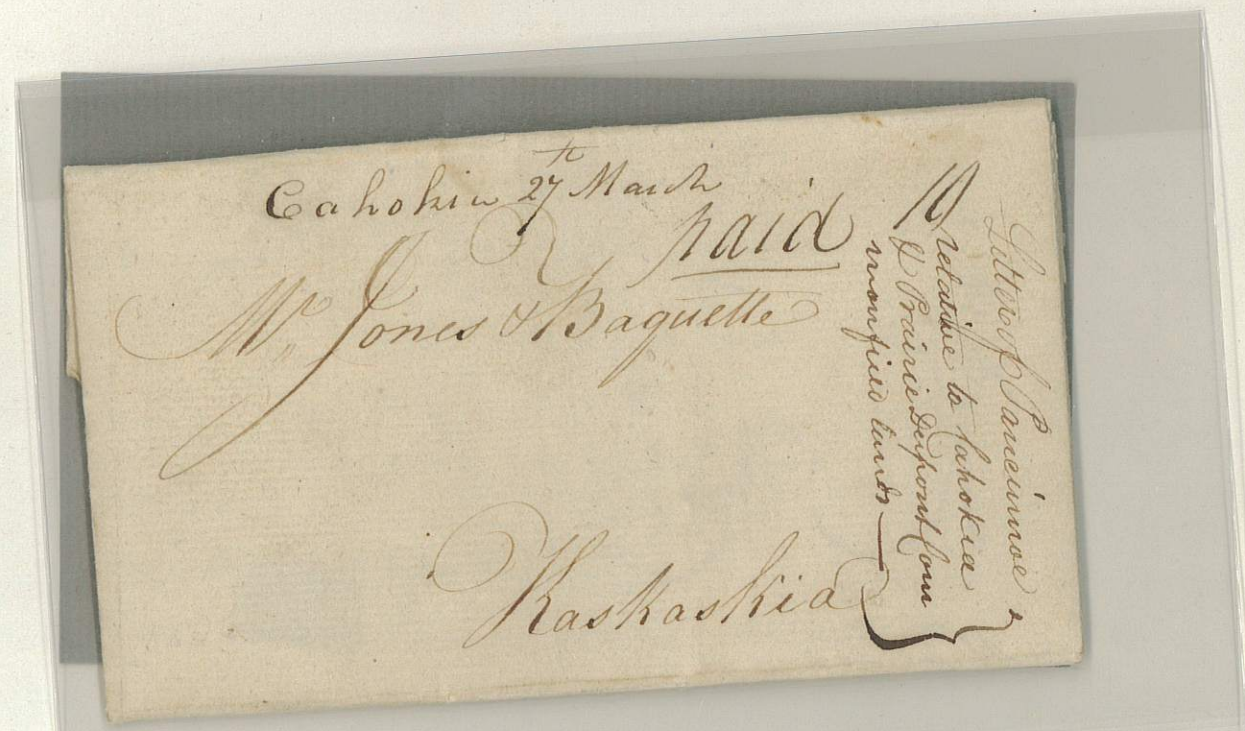 Cahokia 27th March
paid
10
Mr. Jones & Baquette
Kaskaskia
Letter of
relative to Cahokia
& Prairie Dupont Com
lands